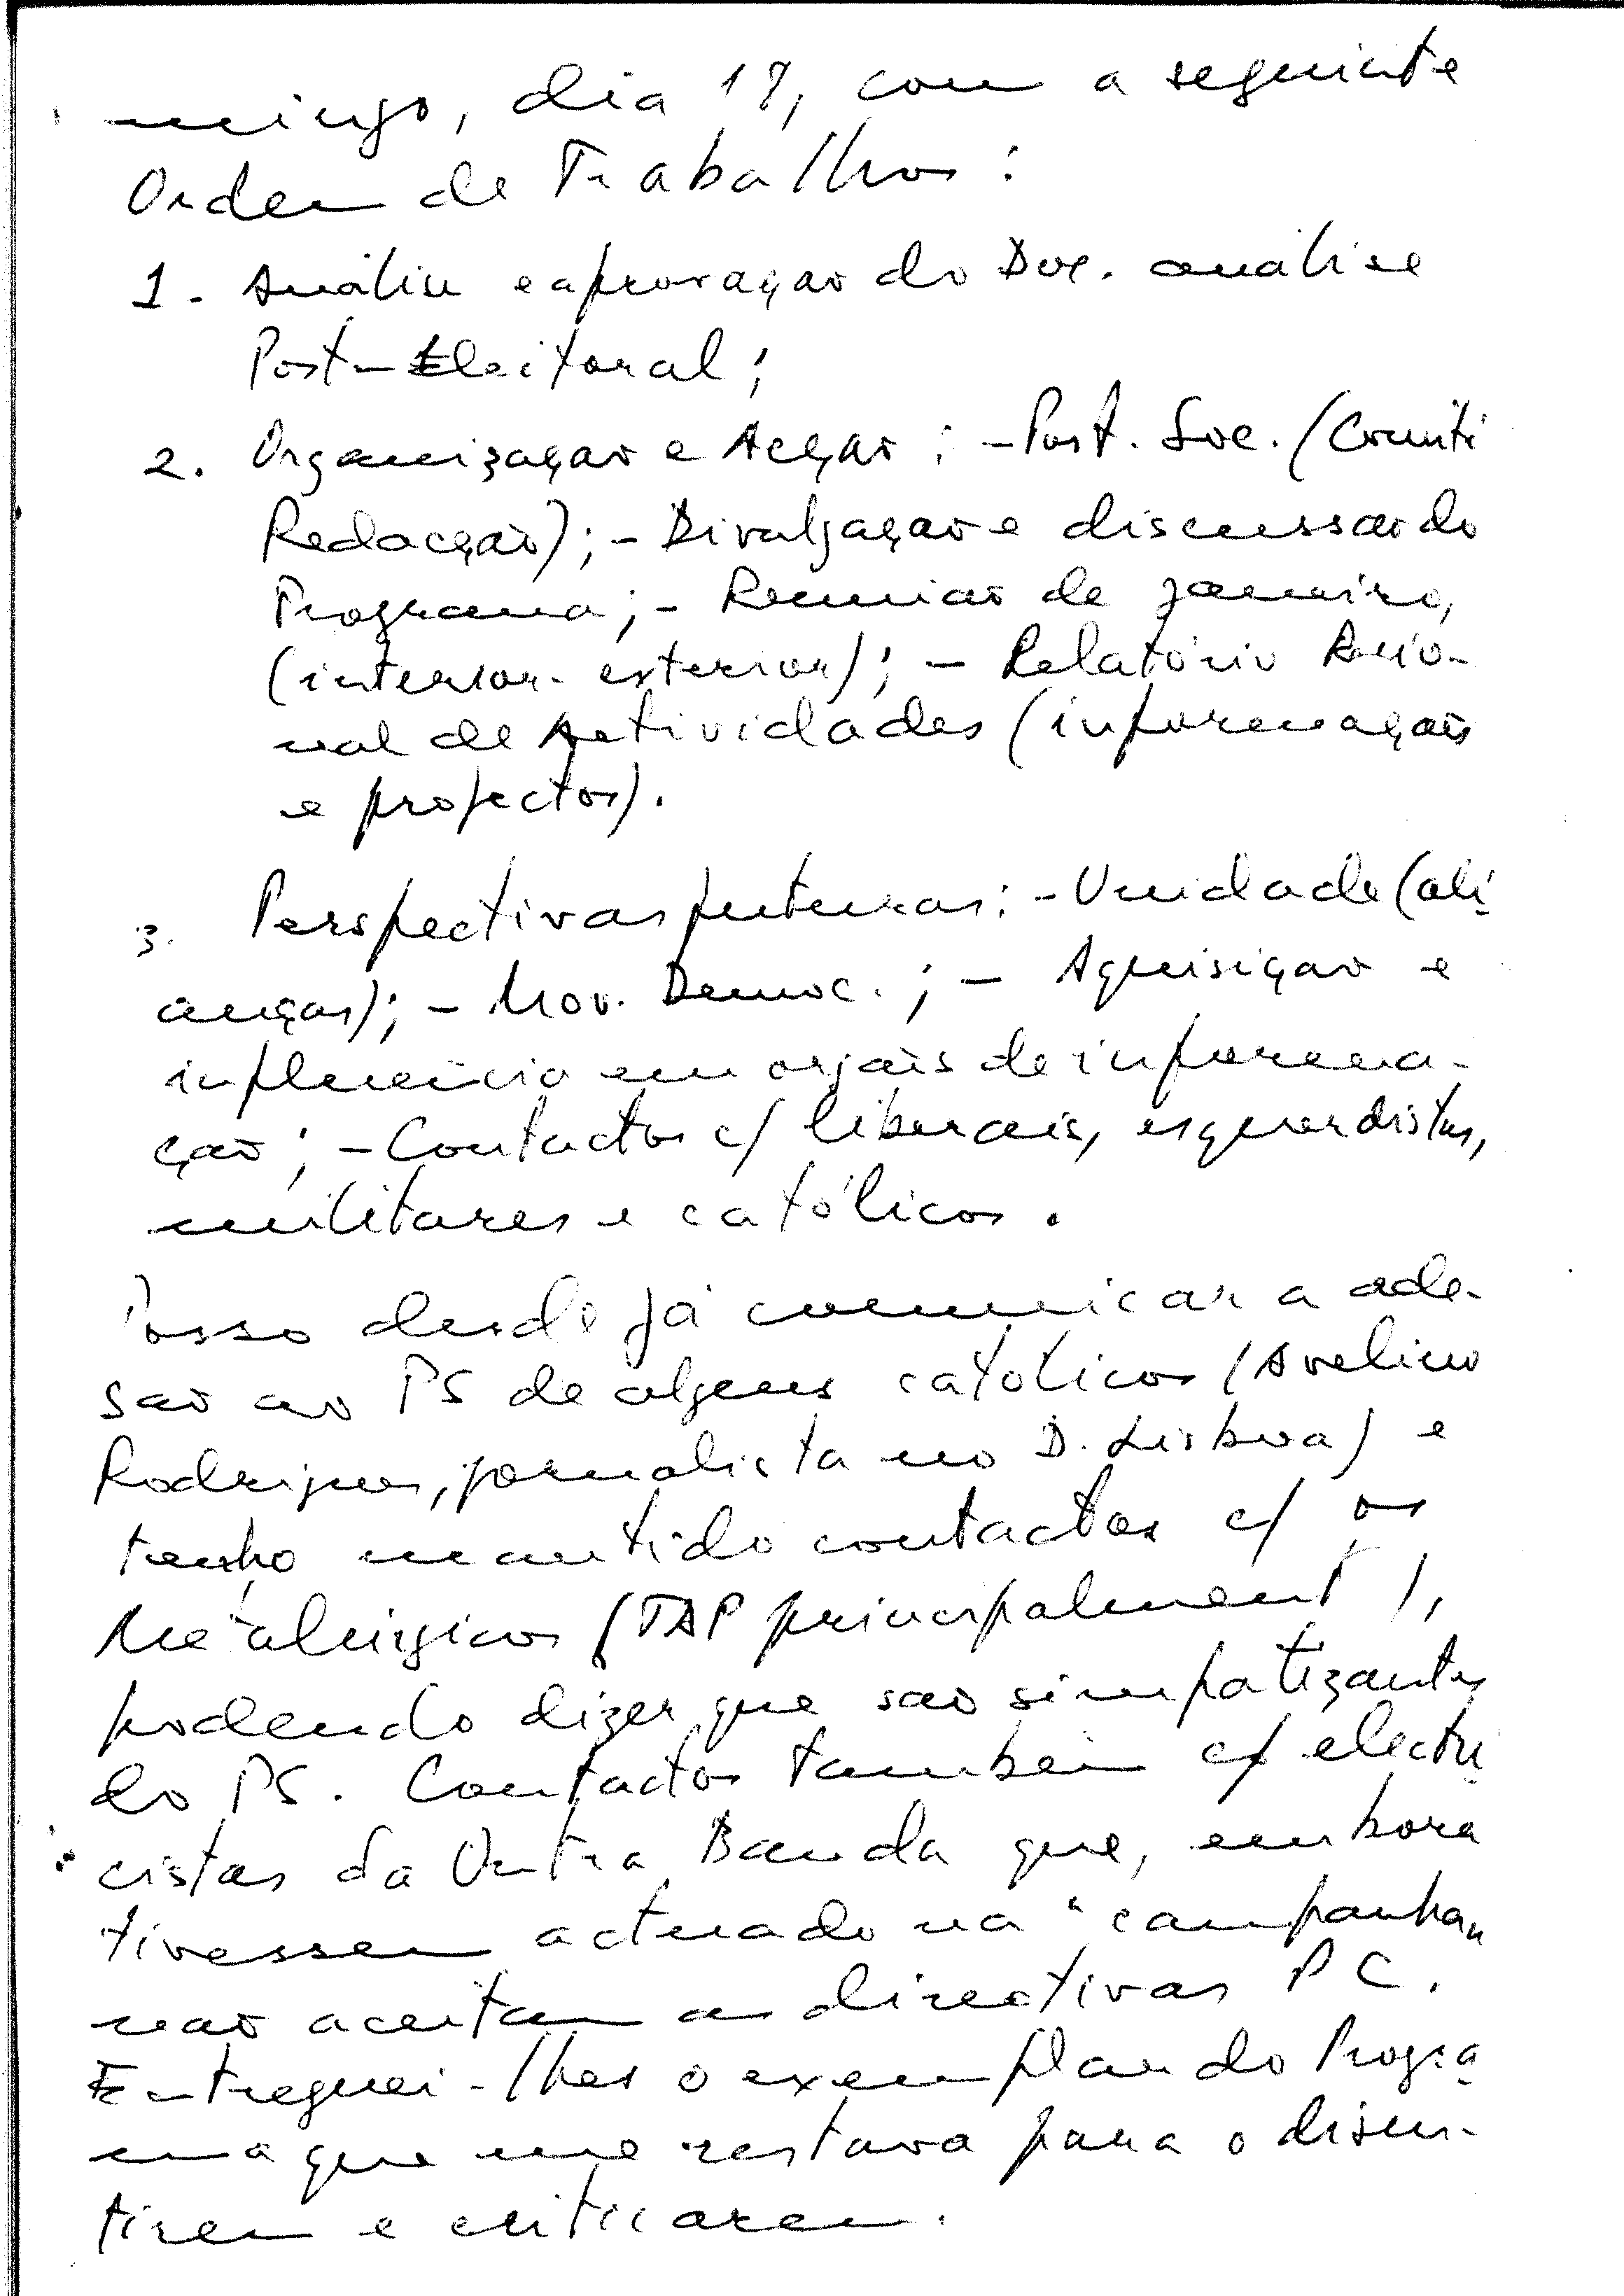 mingo, dia 17, com a seguinte
Ordem de Trabalhos :
1. Análise e aprovação do Doc. análise
Post-Eleitoral ;
2. Organização e Acção : - Port. Soc. (Comité
Redacção) ; - Divulgação e discussão do
Programa ; - Reunião de Janeiro,
(interior - exterior) ; - Relatório
nal de Actividades (informações
e projectos).
3. Perspectivas futuras : - Unidade (ali
anças) ; - Mov. Democ. ; - Aquisição e
influência em orgãos de informa-
ção ; - Contactos c/ liberais, esquerdistas,
militares e católicos.
Posso desde já comunicar a ade-
são ao PS de alguns católicos (Avelino
Rodrigues, jornalista no D. Lisboa) e
tenho mantido contactos c/ os
Metalúrgicos (TAP principalment),
podendo dizer que são simpatizantes
do PS. Contactos também c/ electri
cistas da Outra Banda que, embora
tivessem actuado na "campanha"
não aceitam as directivas PC.
Entreguei-lhes o exemplar do Progra
ma que me restava para o discu-
tirem e criticarem.